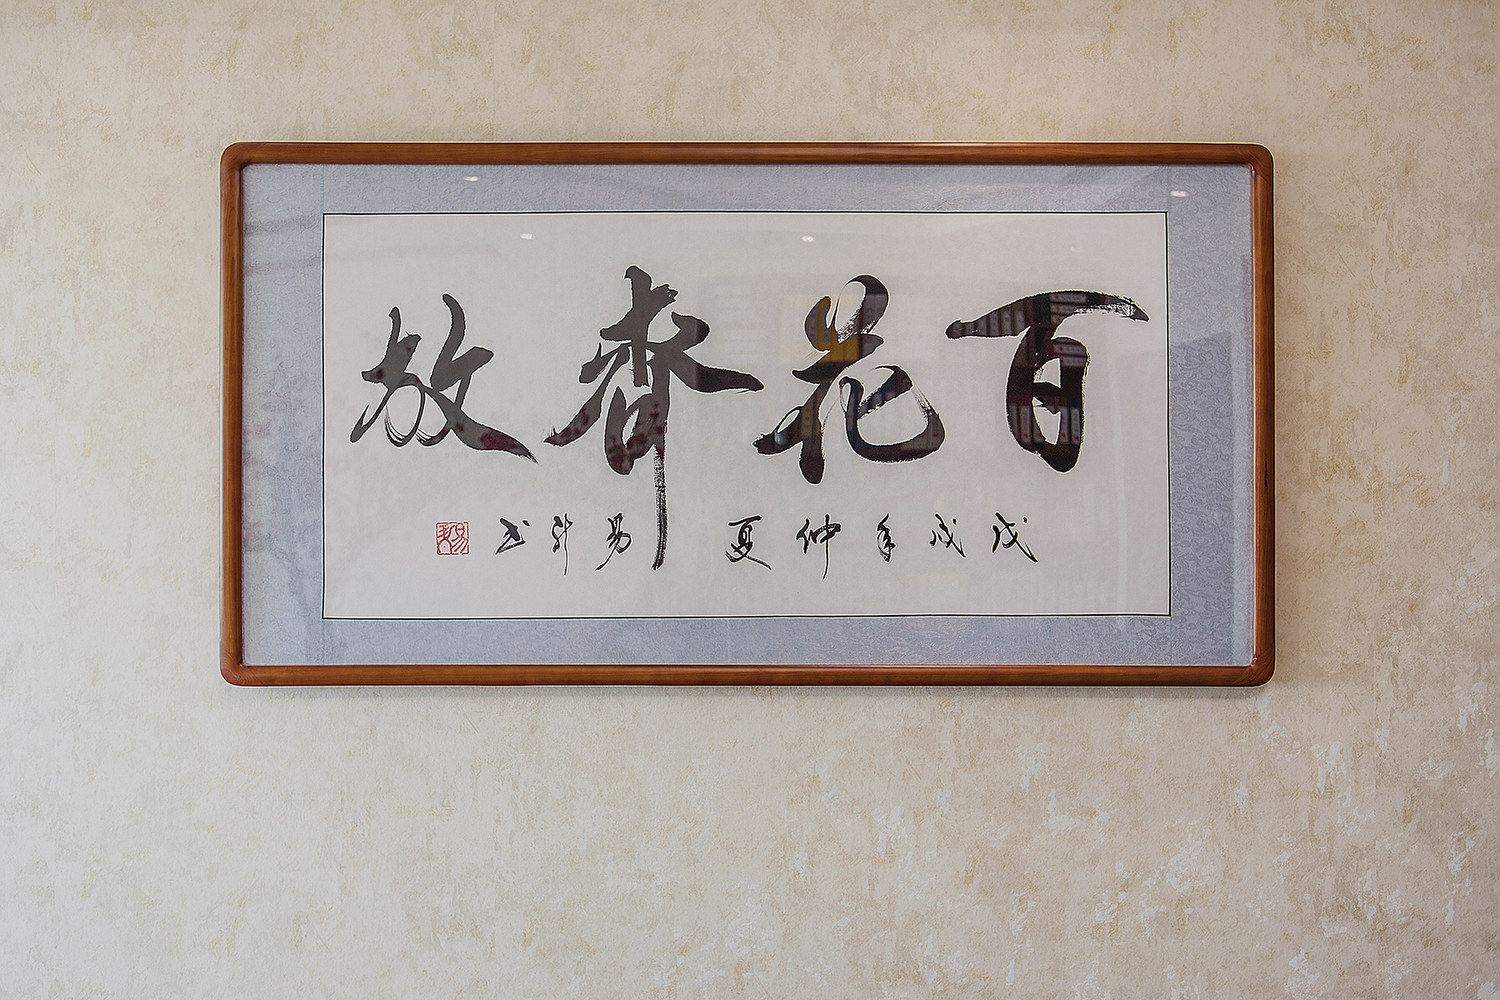 百花齊放
戊戌年仲夏 易 书